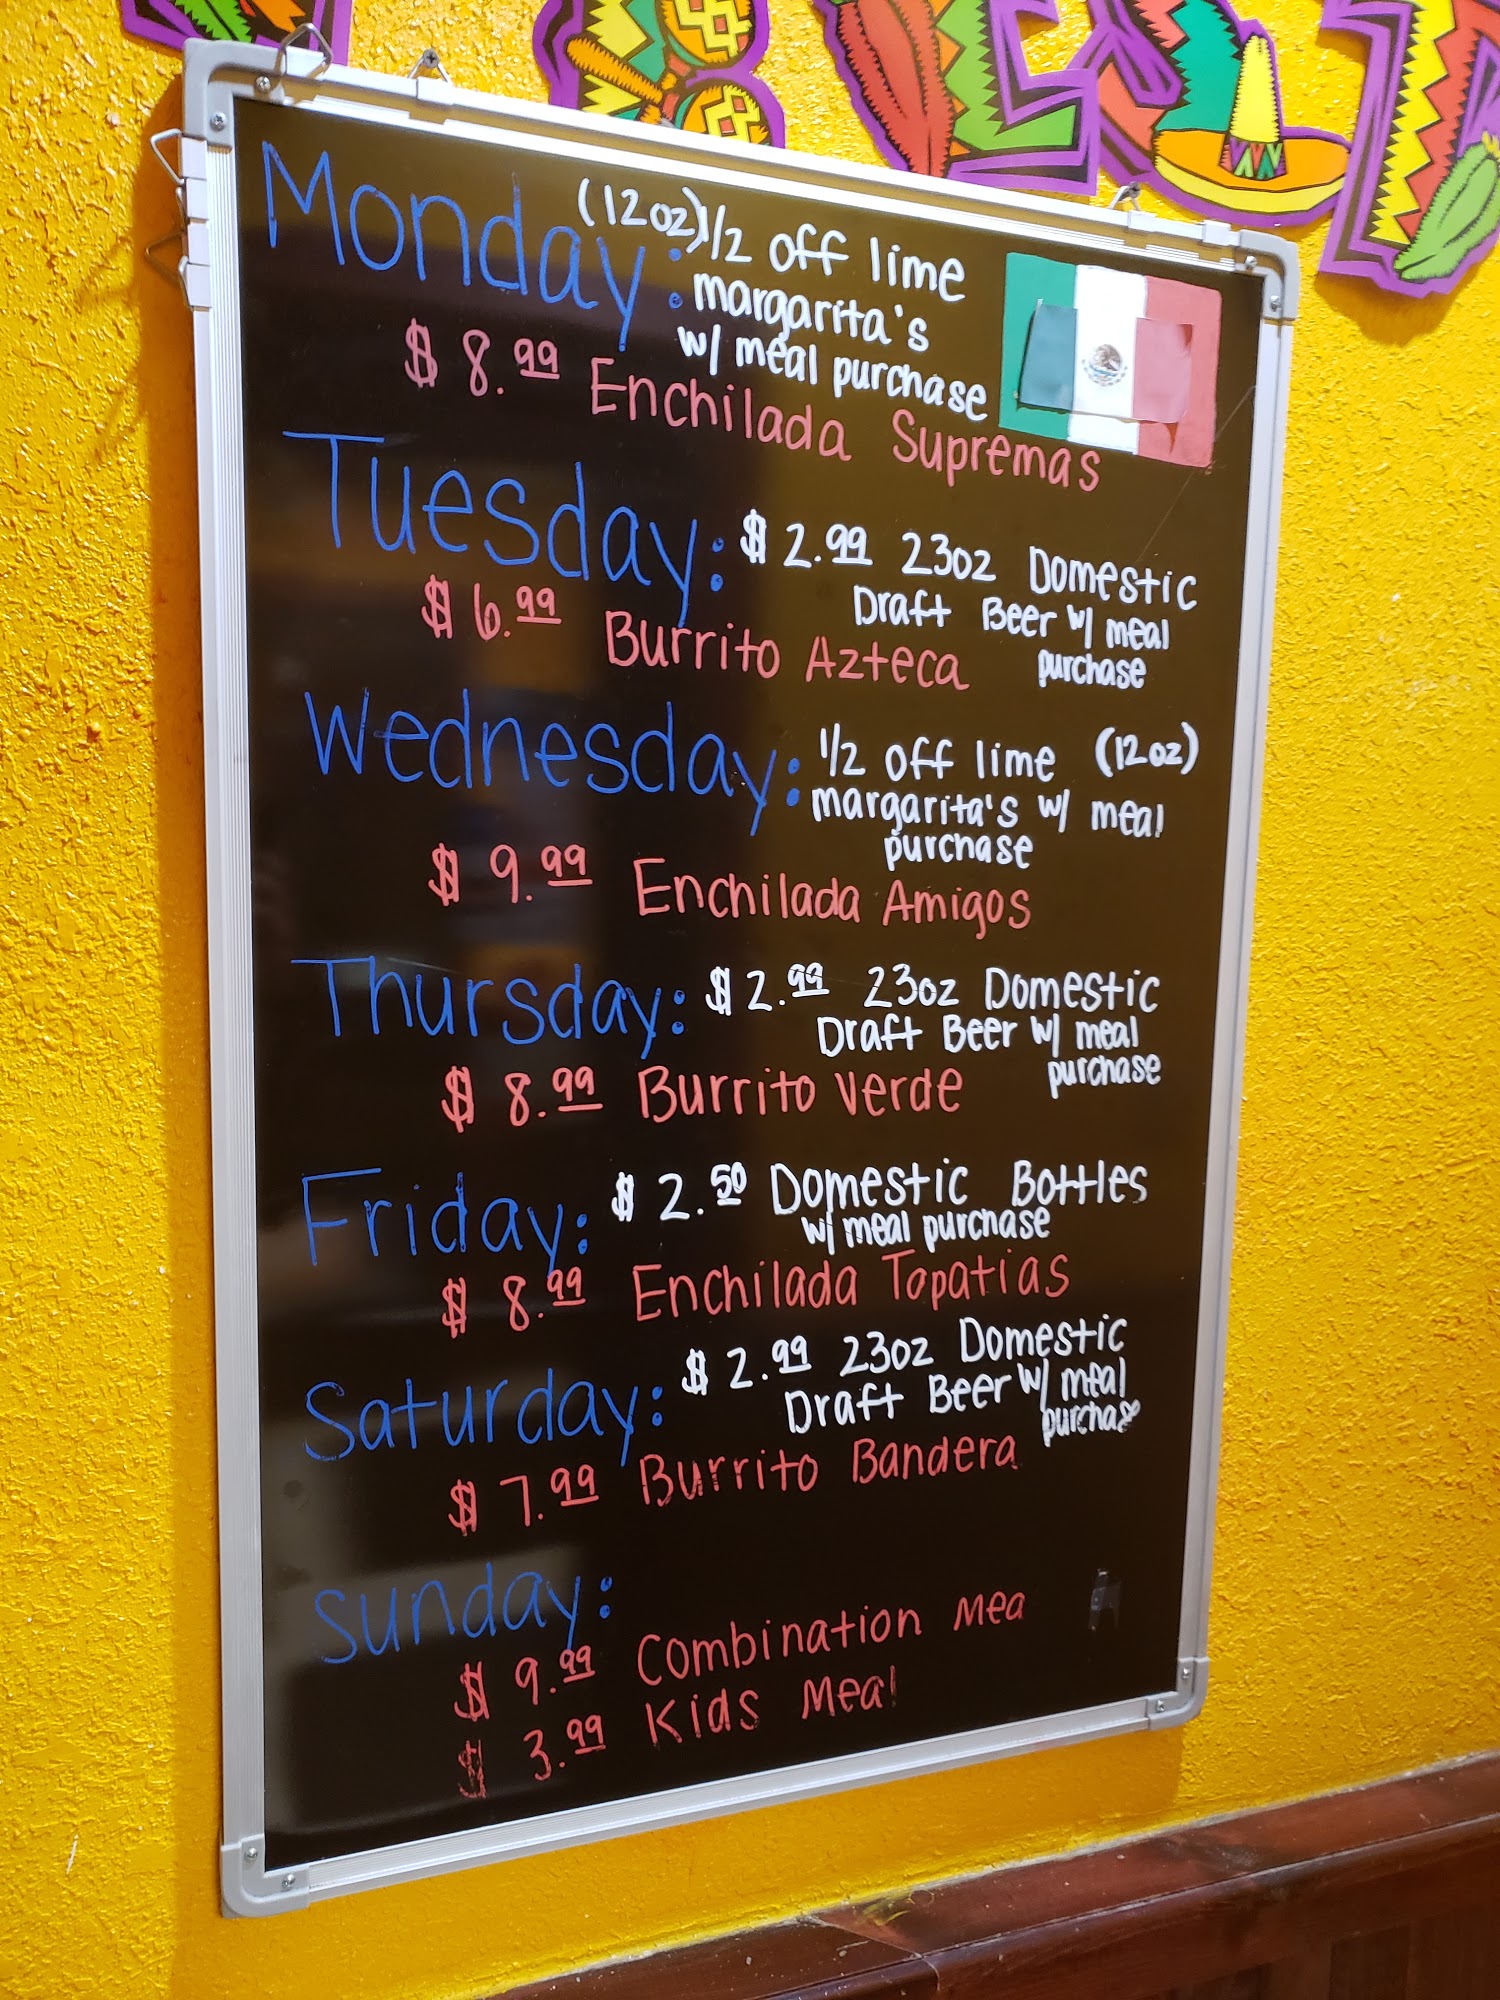 Monday: (12oz) 1/2 off lime
margarita's
w/ meal purchase
$ 8.99 Enchilada Supremas
Tuesday: $ 2.99 23oz Domestic
Draft Beer w/ meal
purchase
$ 6.99 Burrito Azteca
Wednesday: 1/2 off lime (12oz)
margarita's w/ meal
purchase
$ 9.99 Enchilada Amigos
Thursday: $ 2.99 23oz Domestic
Draft Beer w/ meal
purchase
$ 8.99 Burrito Verde
Friday: $ 2.50 Domestic Bottles
w/ meal purchase
$ 8.99 Enchilada Tapatias
Saturday: $ 2.99 23oz Domestic
Draft Beer w/ meal
purchase
$ 7.99 Burrito Bandera
Sunday:
$ 9.99 Combination Mea
$ 3.99 Kids Meal